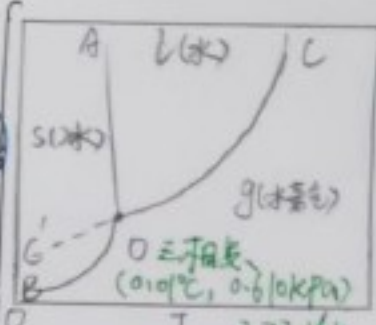 A
l(水)
C
S(冰)
g(水蒸气)
C'
O 三相点
(0.01℃, 0.610kPa)
B
O
T